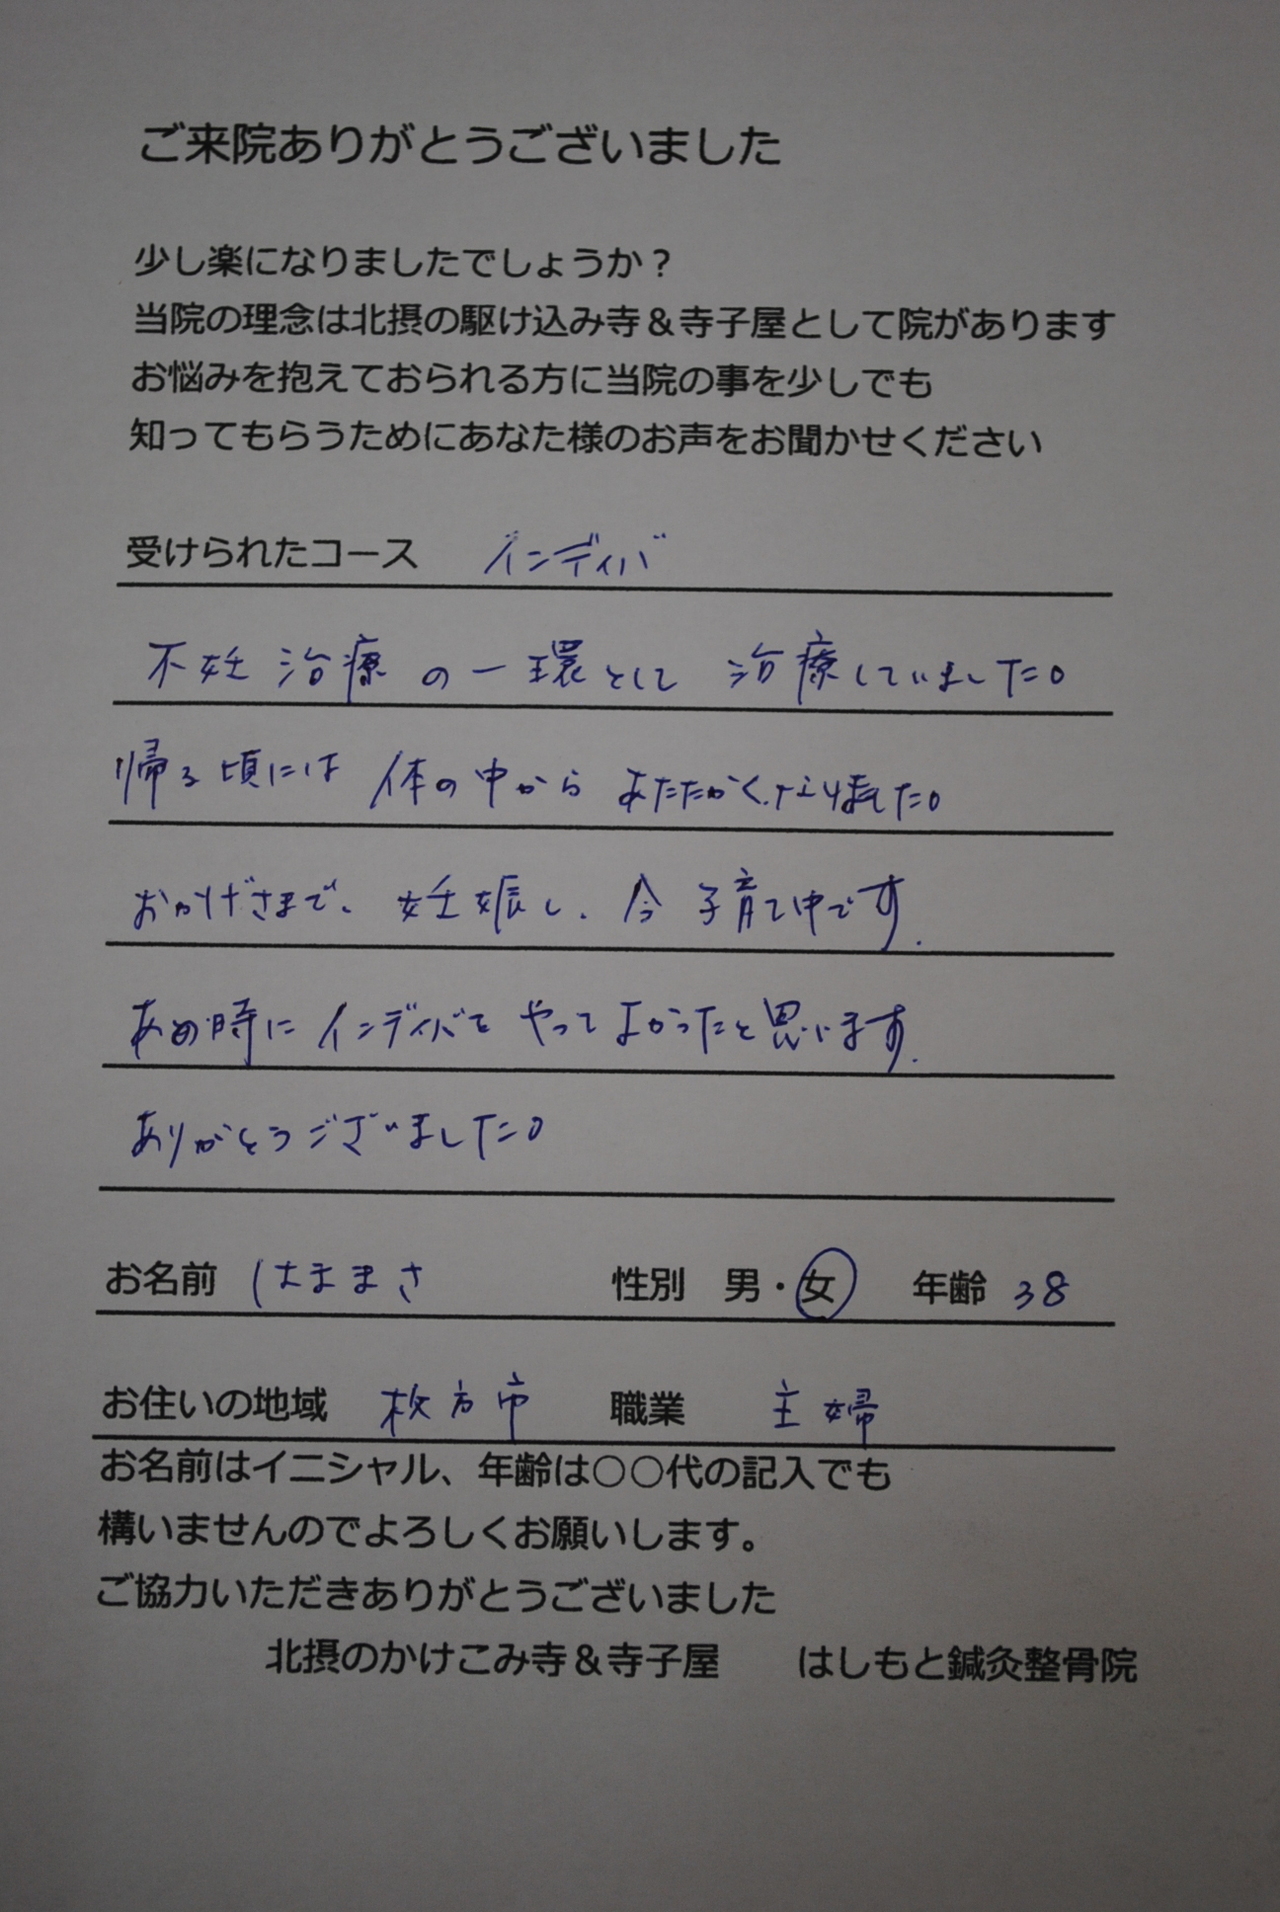 ご来院ありがとうございました
少し楽になりましたでしょうか？
当院の理念は北摂の駆け込み寺＆寺子屋として院があります
お悩みを抱えておられる方に当院の事を少しでも
知ってもらうためにあなた様のお声をお聞かせください
受けられたコース インディバ
不妊治療の一環として 治療していました。
帰る頃には 体の中から あたたかくなりました。
おかげさまで、妊娠し、今 子育て中です。
あの時に インディバを やって よかったと思います。
ありがとうございました。
お名前 はままさ 性別 男・女 年齢 38
お住いの地域 枚方市 職業 主婦
お名前はイニシャル、年齢は○○代の記入でも
構いませんのでよろしくお願いします。
ご協力いただきありがとうございました
北摂のかけこみ寺＆寺子屋 はしもと鍼灸整骨院